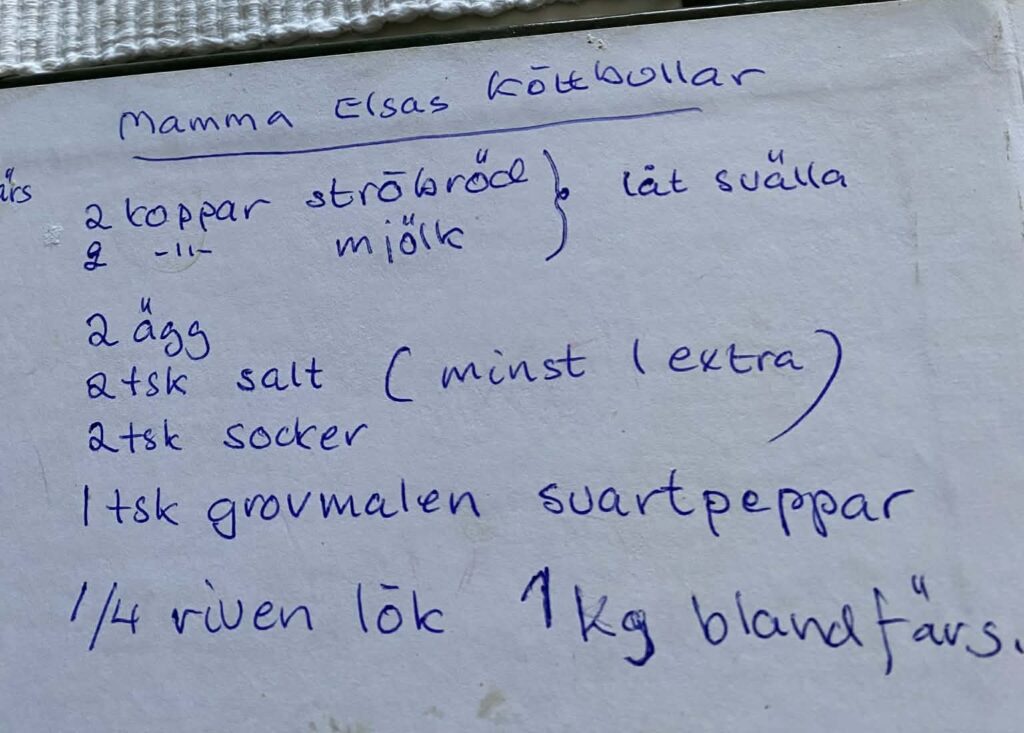 Mamma Elsas Köttbullar
2 koppar ströbröd } låt svälla
2 -"- mjölk
2 ägg
2 tsk salt (minst 1 extra)
2 tsk socker
1 tsk grovmalen svartpeppar
1/4 riven lök 1 kg blandfärs.